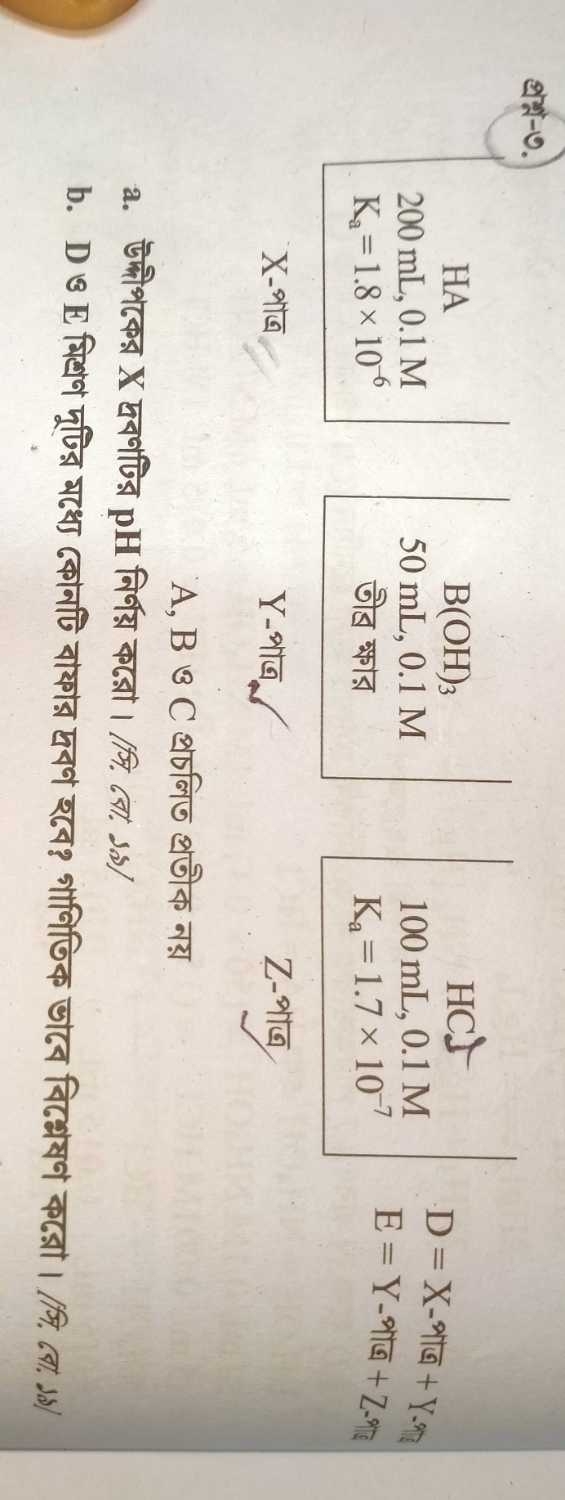 প্রশ্ন-৩.
HA
200 mL, 0.1 M
Kₐ = 1.8 × 10⁻⁶
X-পাত্র
B(OH)₃
50 mL, 0.1 M
তীব্র ক্ষার
Y-পাত্র
HC
100 mL, 0.1 M
Kₐ = 1.7 × 10⁻⁷
Z-পাত্র
D = X-পাত্র + Y-পাত্র
E = Y-পাত্র + Z-পাত্র
A, B ও C প্রচলিত প্রতীক নয়
a. উদ্দীপকের X দ্রবণটির pH নির্ণয় করো। [সি. বো. ১৯]
b. D ও E মিশ্রণ দুটির মধ্যে কোনটি বাফার দ্রবণ হবে? গাণিতিক ভাবে বিশ্লেষণ করো। [সি. বো. ১৯]